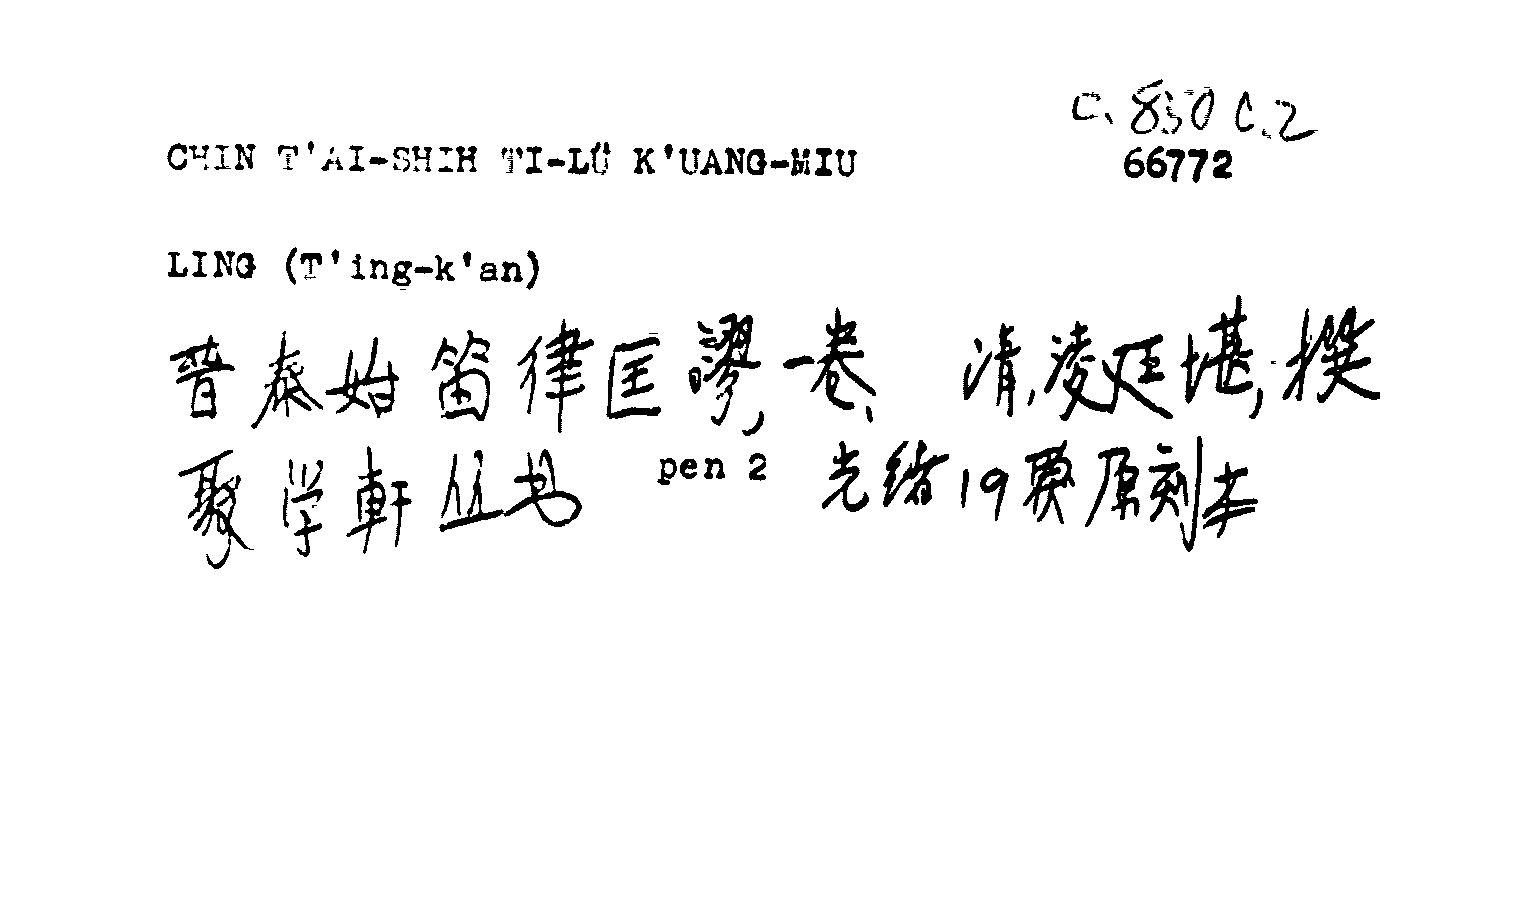 C. 850 C.2
CHIN T'AI-SHIH TI-LÜ K'UANG-MIU 66772
LING (T'ing-k'an)
晉泰始笛律匡謬, 一卷、 清, 凌廷堪, 撰
聚学軒丛书 pen 2 光緒19 原刻本